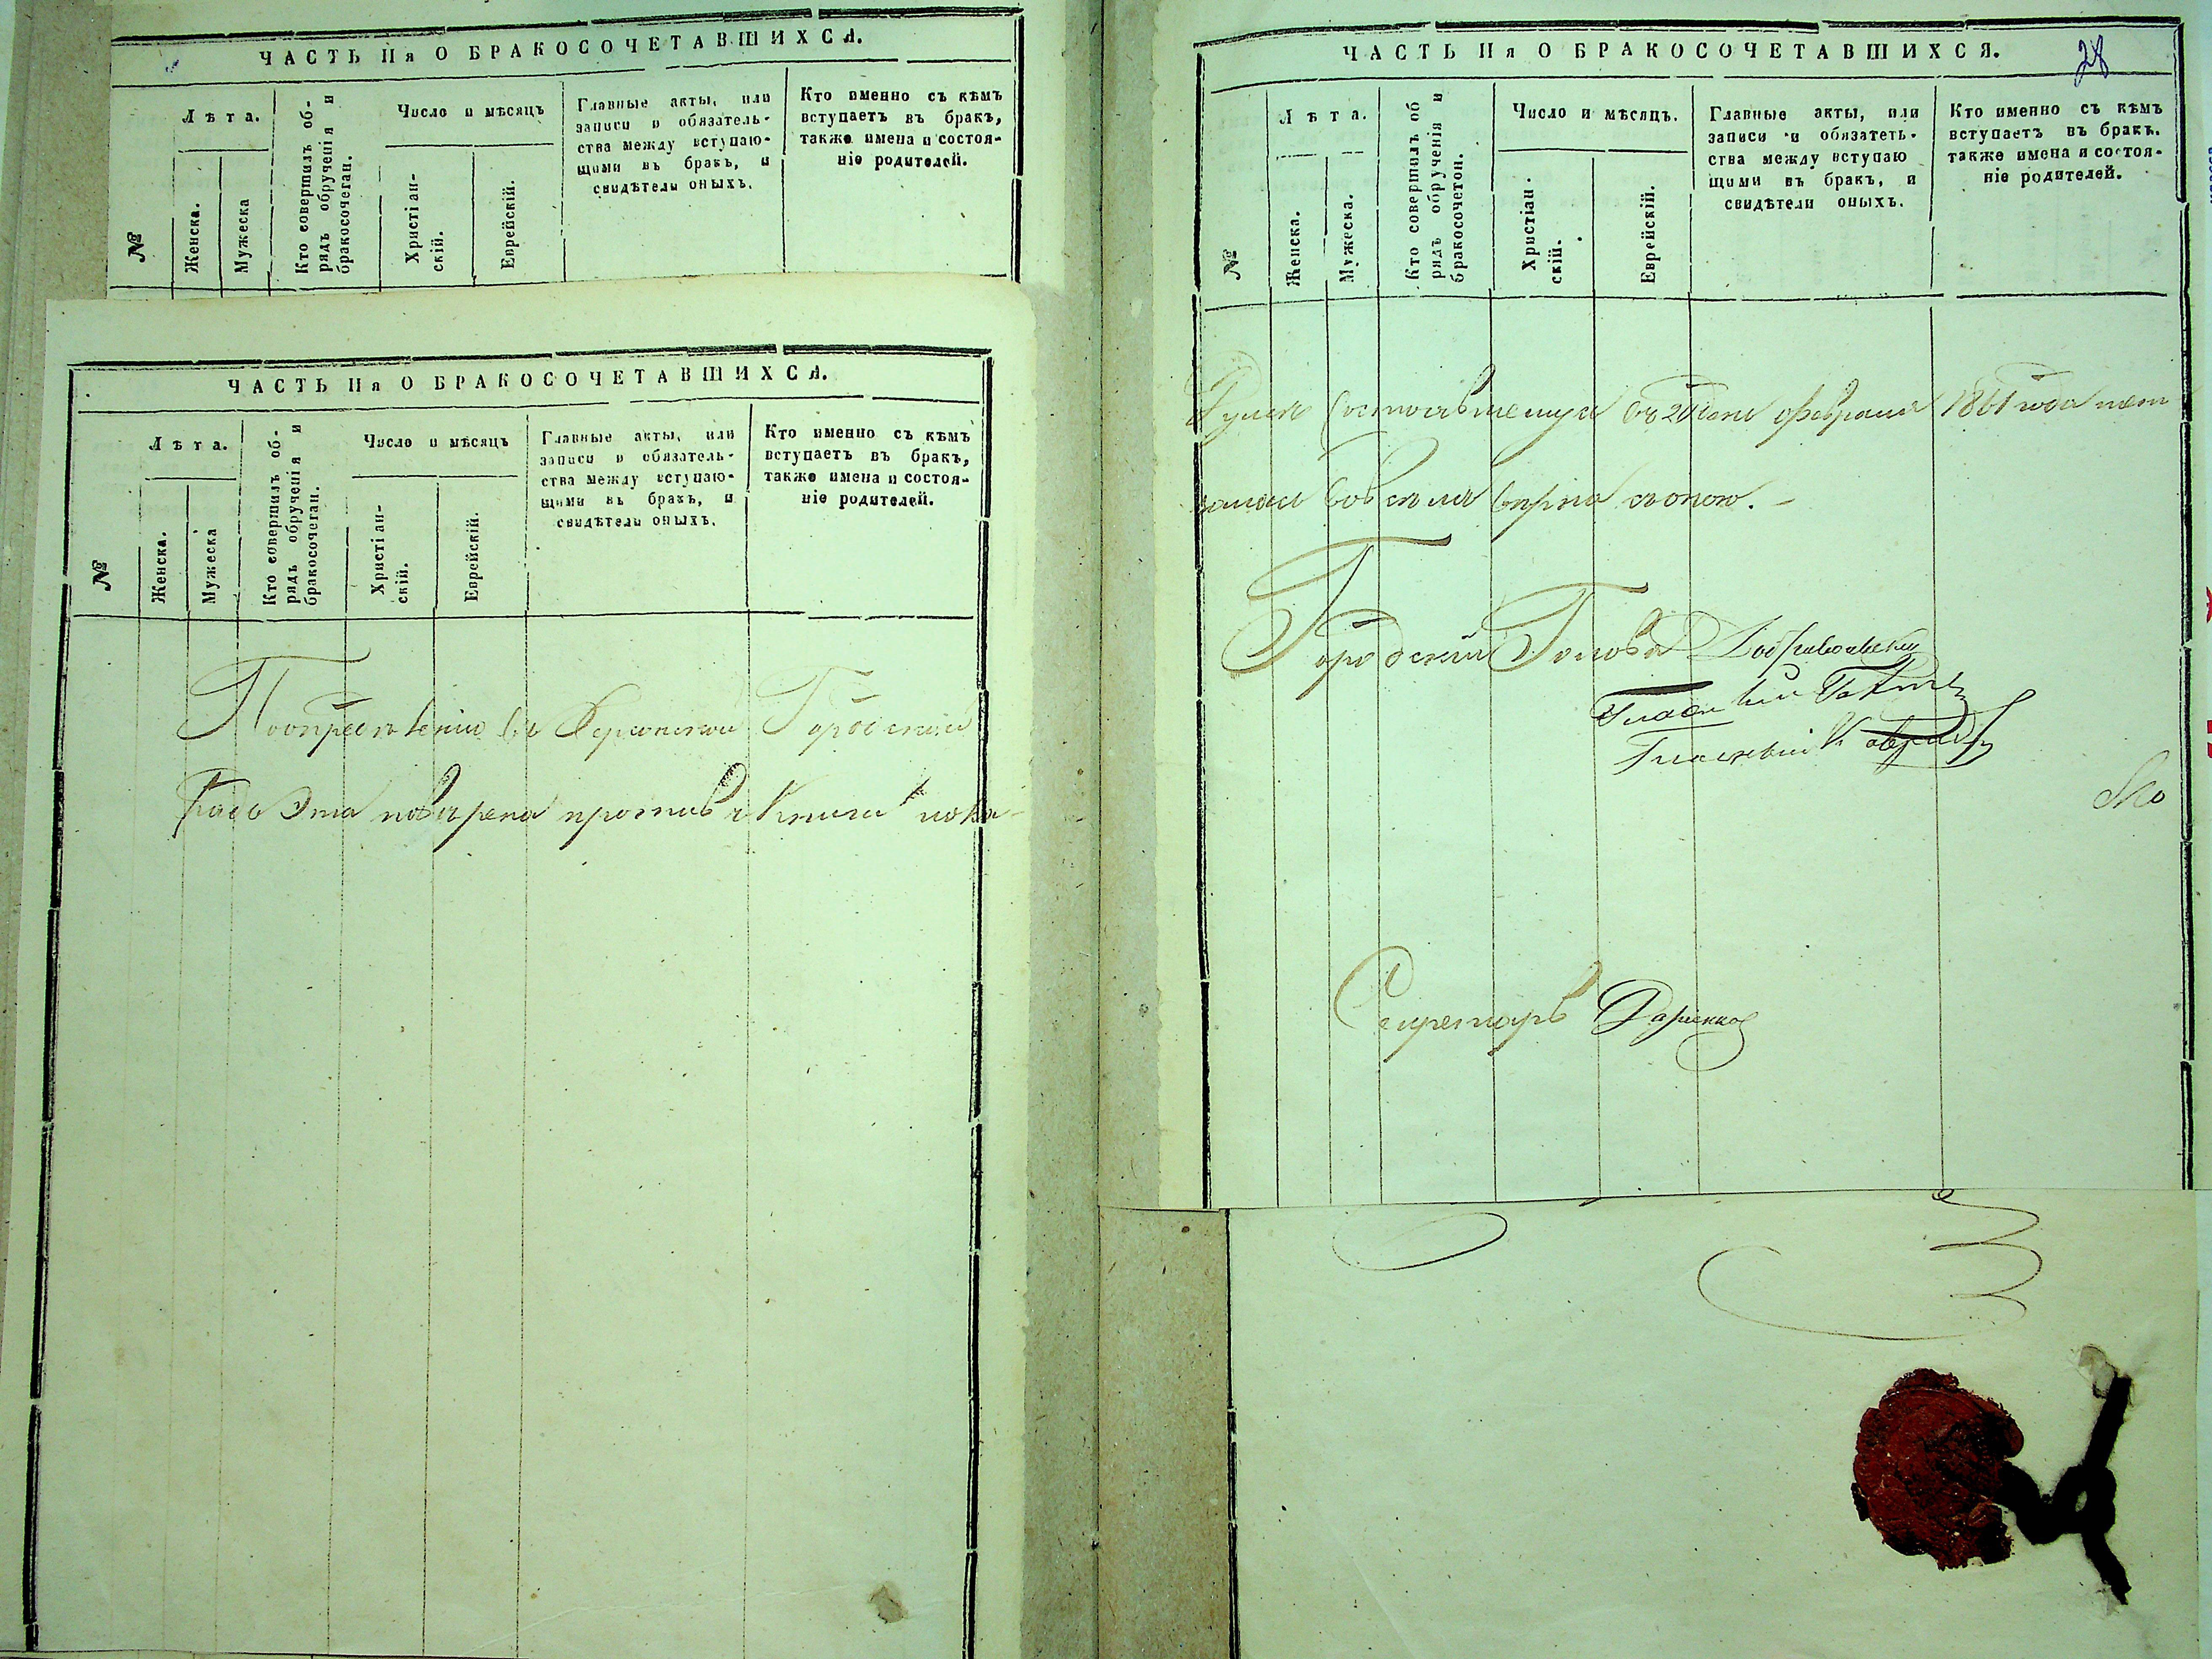 ЧАСТЬ IIя О БРАКОСОЧЕТАВШИХСЯ.
№
Лѣта.
Женска.
Мужеска
Кто совершилъ об-
рядъ обрученія и
бракосочетан.
Число и мѣсяцъ
Христіан-
скій.
Еврейскій.
Главные акты, или
записи и обязатель-
ства между вступаю-
щими въ бракъ, и
свидѣтели оныхъ.
Кто именно съ кѣмъ
вступаетъ въ бракъ,
также имена и состоя-
ніе родителей.
ЧАСТЬ IIя О БРАКОСОЧЕТАВШИХСЯ.
№
Лѣта.
Женска.
Мужеска
Кто совершилъ об-
рядъ обрученія и
бракосочетан.
Число и мѣсяцъ
Христіан-
скій.
Еврейскій.
Главные акты, или
записи и обязатель-
ства между вступаю-
щими въ бракъ, и
свидѣтели оныхъ.
Кто именно съ кѣмъ
вступаетъ въ бракъ,
также имена и состоя-
ніе родителей.
Городской
Эта повѣрена противъ Книги
ЧАСТЬ IIя О БРАКОСОЧЕТАВШИХСЯ.
28
№
Лѣта.
Женска.
Мужеска.
Кто совершилъ об
рядъ обрученія и
бракосочетон.
Число и мѣсяцъ.
Христіан-
скій.
Еврейскій.
Главные акты, или
записи и обязатеть-
ства между вступаю
щими въ бракъ, и
свидѣтели оныхъ.
Кто именно съ кѣмъ
вступаетъ въ бракъ.
также имена и состоя-
ніе родителей.
состоявшемуся февраля 1861 года
вѣрна съ оною.
Городской Голова
Гласный
Секретарь